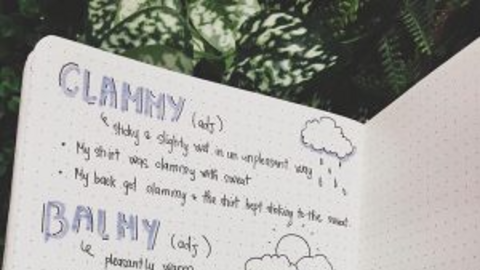 CLAMMY (adj)
sticky & slightly wet in an unpleasant way
• My shirt was clammy with sweat
• My back got clammy & the shirt kept sticking to the sweat.
BALMY (adj)
pleasantly warm